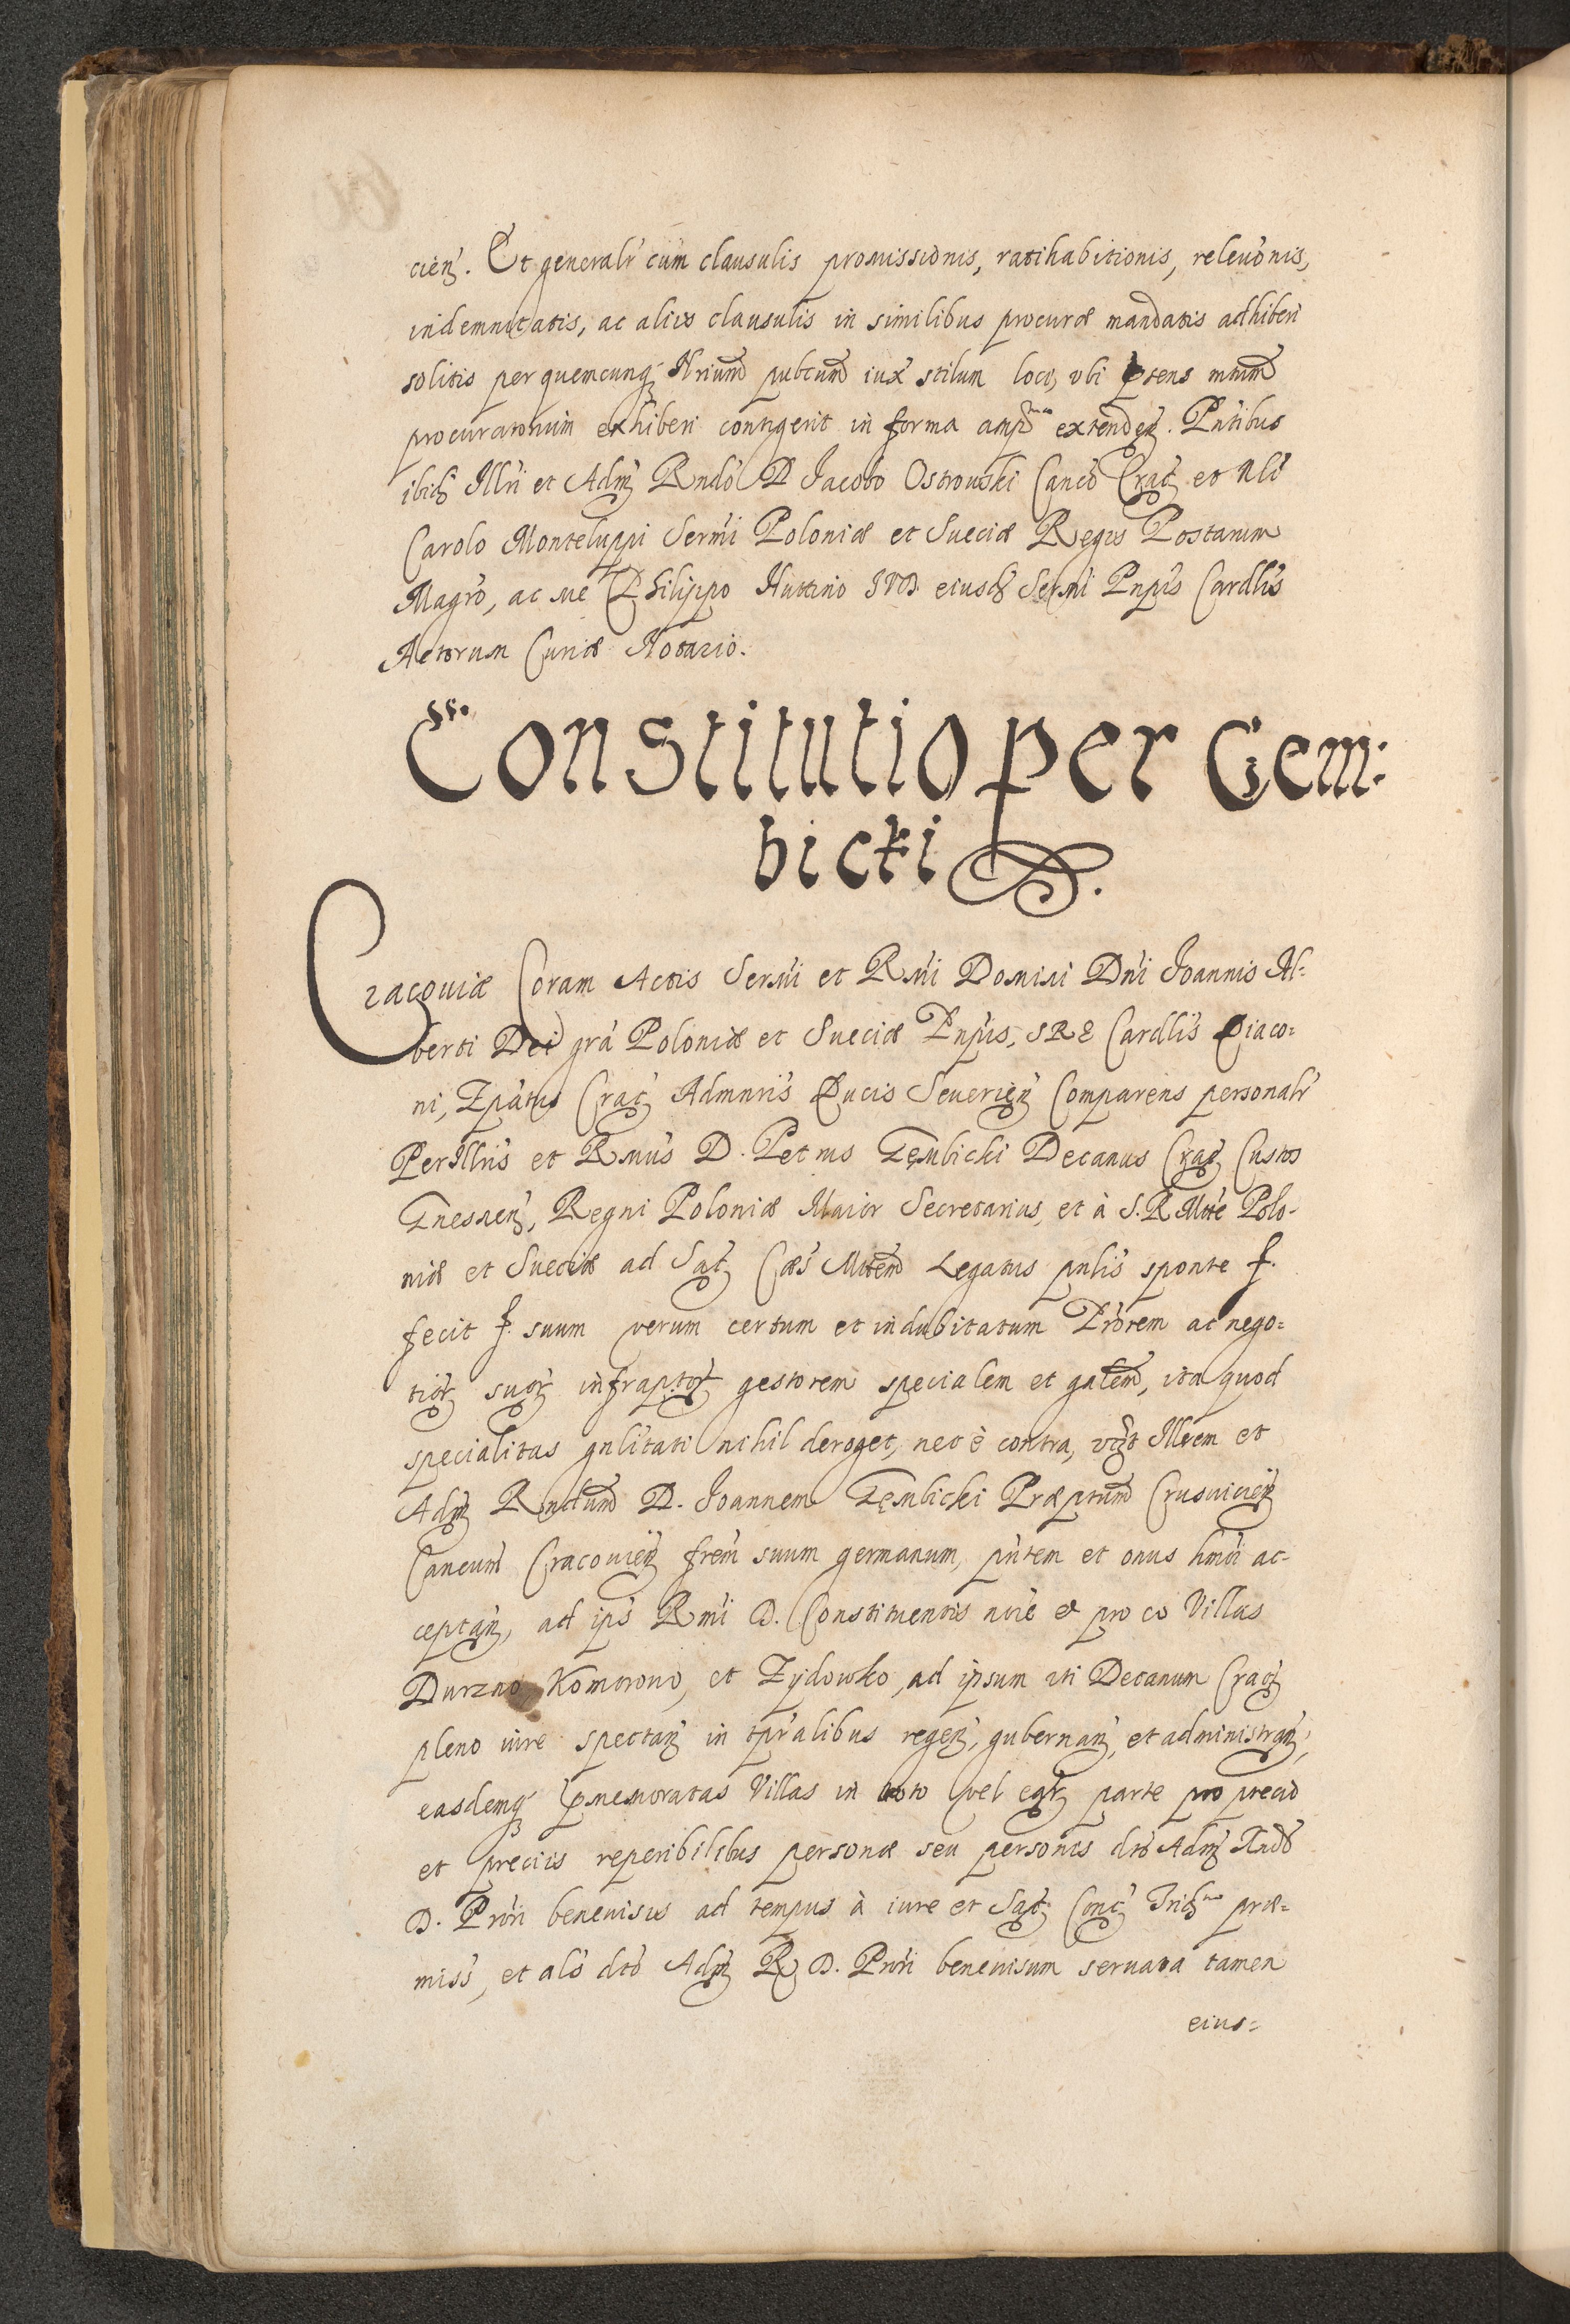 cień. Et generalr cum clausulis promissionis, ratihabitionis, releuonis,
indemnitatis, ac aliis clausulis in similibus procuræ mandatis adhiberi
solitis per quemcunq Nrium pubcum iux stilum loci, vbi pñens mtum
procuratorium exhiberi contigerit in forma amp extendeñ. Pntibus
ibid Illri et Adm Rndo D Jacobo Ostrouski Canco Crac et Nli
Carolo Monteluppi Sermi Poloniæ et Sueciæ Regis Postarum
Magro, ac me Philippo Huttino IVD eiusd Sermi Pnpis Cardlis
Actorum Curiæ Notario.
SS.
Constitutio per Gem:
bicki
Cracouiæ Coram Actis Sermi et Rmi Domini Dni Joannis Al:
berti Dei gra Poloniæ et Sueciæ Pnpis, SRE Cardlis Diaco:
ni, Epatus Crac Admnris Ducis Seuerień Comparens personalr
PerIllris et Rmus D. Petrus Gęmbicki Decanus Crac Custos
Gnesneñ, Regni Poloniæ Maior Secretarius, et à S.R Mtte Polo-
niæ et Sueciæ ad Sac Cæs Mttem Legatus pnlis sponte f.
fecit f. suum verum certum et indubitatum Prorem ac nego:
tior suor infraptor gestorem specialem et galem, ita quod
specialitas gnlitati nihil deroget, nec è contra, vczt Illrem et
Adm Rndum D. Joannem Gęmbicki Præptum Crusuicień
Cancum Cracouień frem suum germanum, pntem et onus hmoi ac-
ceptań, ad ips Rmi D. Constituentis nuie et pro eo Villas
Durzno Komorowo, et Zydowko, ad ipsum uti Decanum Crac
pleno iure spectañ in tpralibus regeñ, gubernañ, et administrañ,
easdemq pmemoratas Villas in toto vel ear parte pro precio
et preciis reperibilibus personæ seu personis dto Adm Rndo
D. Prori beneuisis ad tempus à iure et Sac Conc Trid præ=
miss, et alo dto Adm R D. Prori beneuisum seruata tamen
eius=